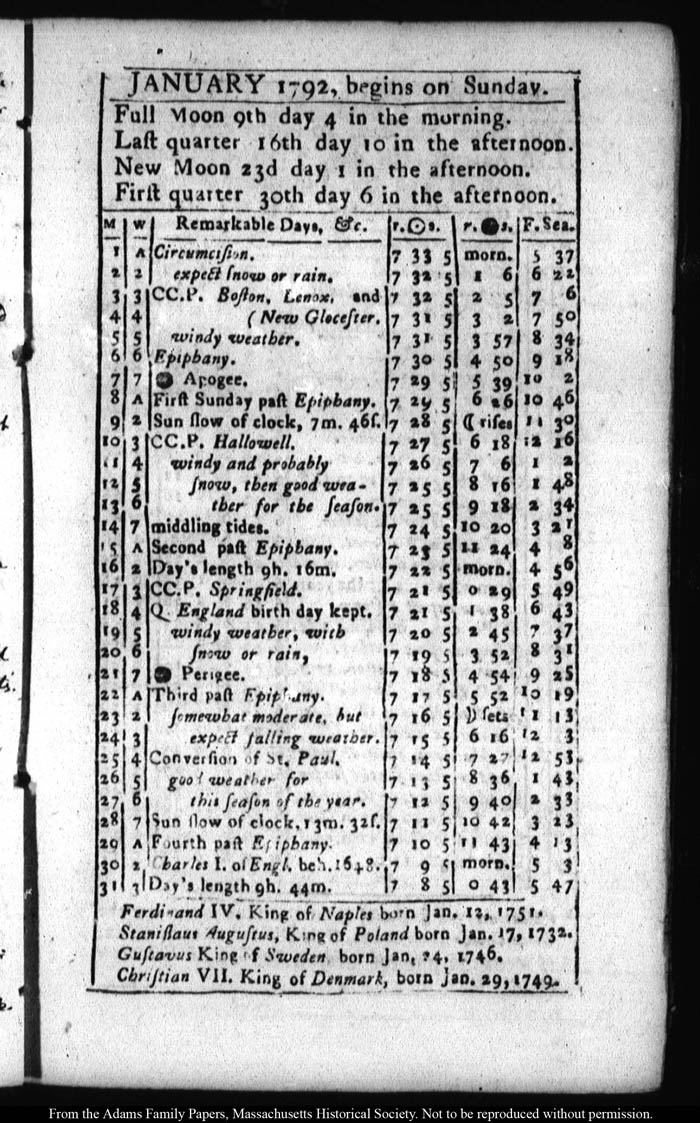 JANUARY 1792, begins on Sunday.
Full Moon 9th day 4 in the morning.
Laſt quarter 16th day 10 in the afternoon.
New Moon 23d day 1 in the afternoon.
Firſt quarter 30th day 6 in the afternoon.
M W Remarkable Days, &c. r.☉s. r.●s. F.Sea.
1 A Circumciſion. 7 33 5 morn. 5 37
2 2 expect ſnow or rain. 7 32 5 1 6 6 22
3 3 CC.P. Boſton, Lenox, and 7 32 5 2 5 7 6
4 4 (New Gloceſter. 7 31 5 3 2 7 50
5 5 windy weather. 7 31 5 3 57 8 34
6 6 Epiphany. 7 30 5 4 50 9 18
7 7 ● Apogee. 7 29 5 5 39 10 2
8 A Firſt Sunday paſt Epiphany. 7 29 5 6 26 10 46
9 2 Sun ſlow of clock, 7m. 46ſ. 7 28 5 ☾ riſes 11 30
10 3 CC.P. Hallowell. 7 27 5 6 18 12 16
11 4 windy and probably 7 26 5 7 6 1 2
12 5 ſnow, then good wea- 7 25 5 8 16 1 48
13 6 ther for the ſeaſon. 7 25 5 9 18 2 34
14 7 middling tides. 7 24 5 10 20 3 21
15 A Second paſt Epiphany. 7 23 5 11 24 4 8
16 2 Day's length 9h. 16m. 7 22 5 morn. 4 56
17 3 CC.P. Springfield. 7 21 5 0 29 5 49
18 4 Q. England birth day kept. 7 21 5 1 38 6 43
19 5 windy weather, with 7 20 5 2 45 7 37
20 6 ſnow or rain, 7 19 5 3 52 8 31
21 7 ● Perigee. 7 18 5 4 54 9 25
22 A Third paſt Epiphany. 7 17 5 5 52 10 19
23 2 ſomewhat moderate, but 7 16 5 ☽ ſets 11 13
24 3 expect falling weather. 7 15 5 6 16 12 3
25 4 Converſion of St. Paul. 7 14 5 7 27 12 53
26 5 good weather for 7 13 5 8 36 1 43
27 6 this ſeaſon of the year. 7 12 5 9 40 2 33
28 7 Sun ſlow of clock, 13m. 32ſ. 7 11 5 10 42 3 23
29 A Fourth paſt Epiphany. 7 10 5 11 43 4 13
30 2 Charles I. of Engl. beh. 1648. 7 9 5 morn. 5 3
31 3 Day's length 9h. 44m. 7 8 5 0 43 5 47
Ferdinand IV. King of Naples born Jan. 12, 1751.
Staniſlaus Auguſtus, King of Poland born Jan. 17, 1732.
Guſtavus King of Sweden born Jan. 24, 1746.
Chriſtian VII. King of Denmark, born Jan. 29, 1749.
From the Adams Family Papers, Massachusetts Historical Society. Not to be reproduced without permission.